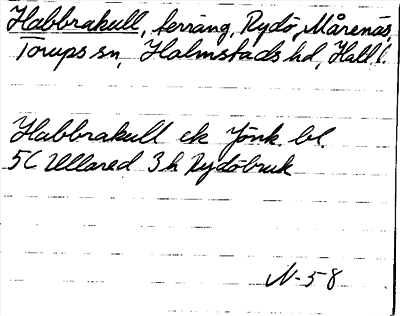 Habbrakull, terräng, Rydö, Mårenäs,
Torups sn, Halmstads hd, Hall l.
Habbrakull ek Jönk. bl.
5C Ullared 3h Rydöbruk
N-58